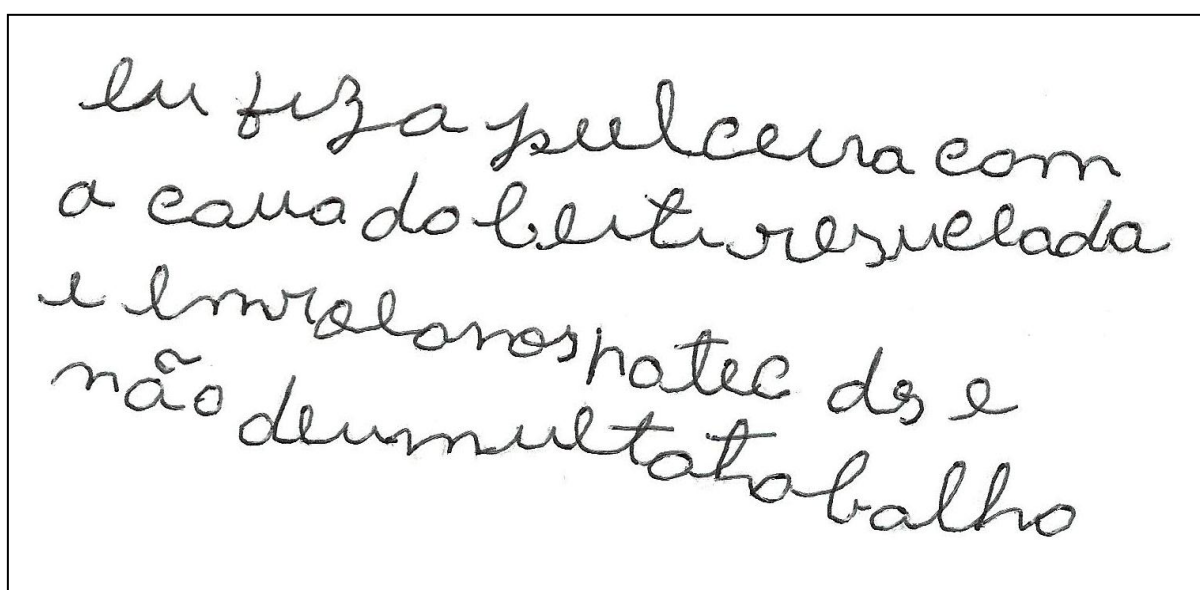 eu fiz a pulceira com
a caua do leiti resuelada
e emrolanos patec ds e
não deu multa tobalho